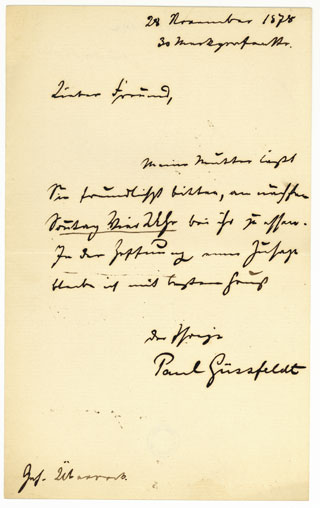 28 November 1878
30 Markgrafenstr.
Lieber Freund,
Meine Mutter läßt
Sie freundlichst bitten, am nächsten
Sonntag Vier Uhr bei ihr zu essen.
In der Hoffnung einer Zusage
bleibe ich mit bestem Gruß
der Ihrige
Paul Güssfeldt
Ges. Überrock.